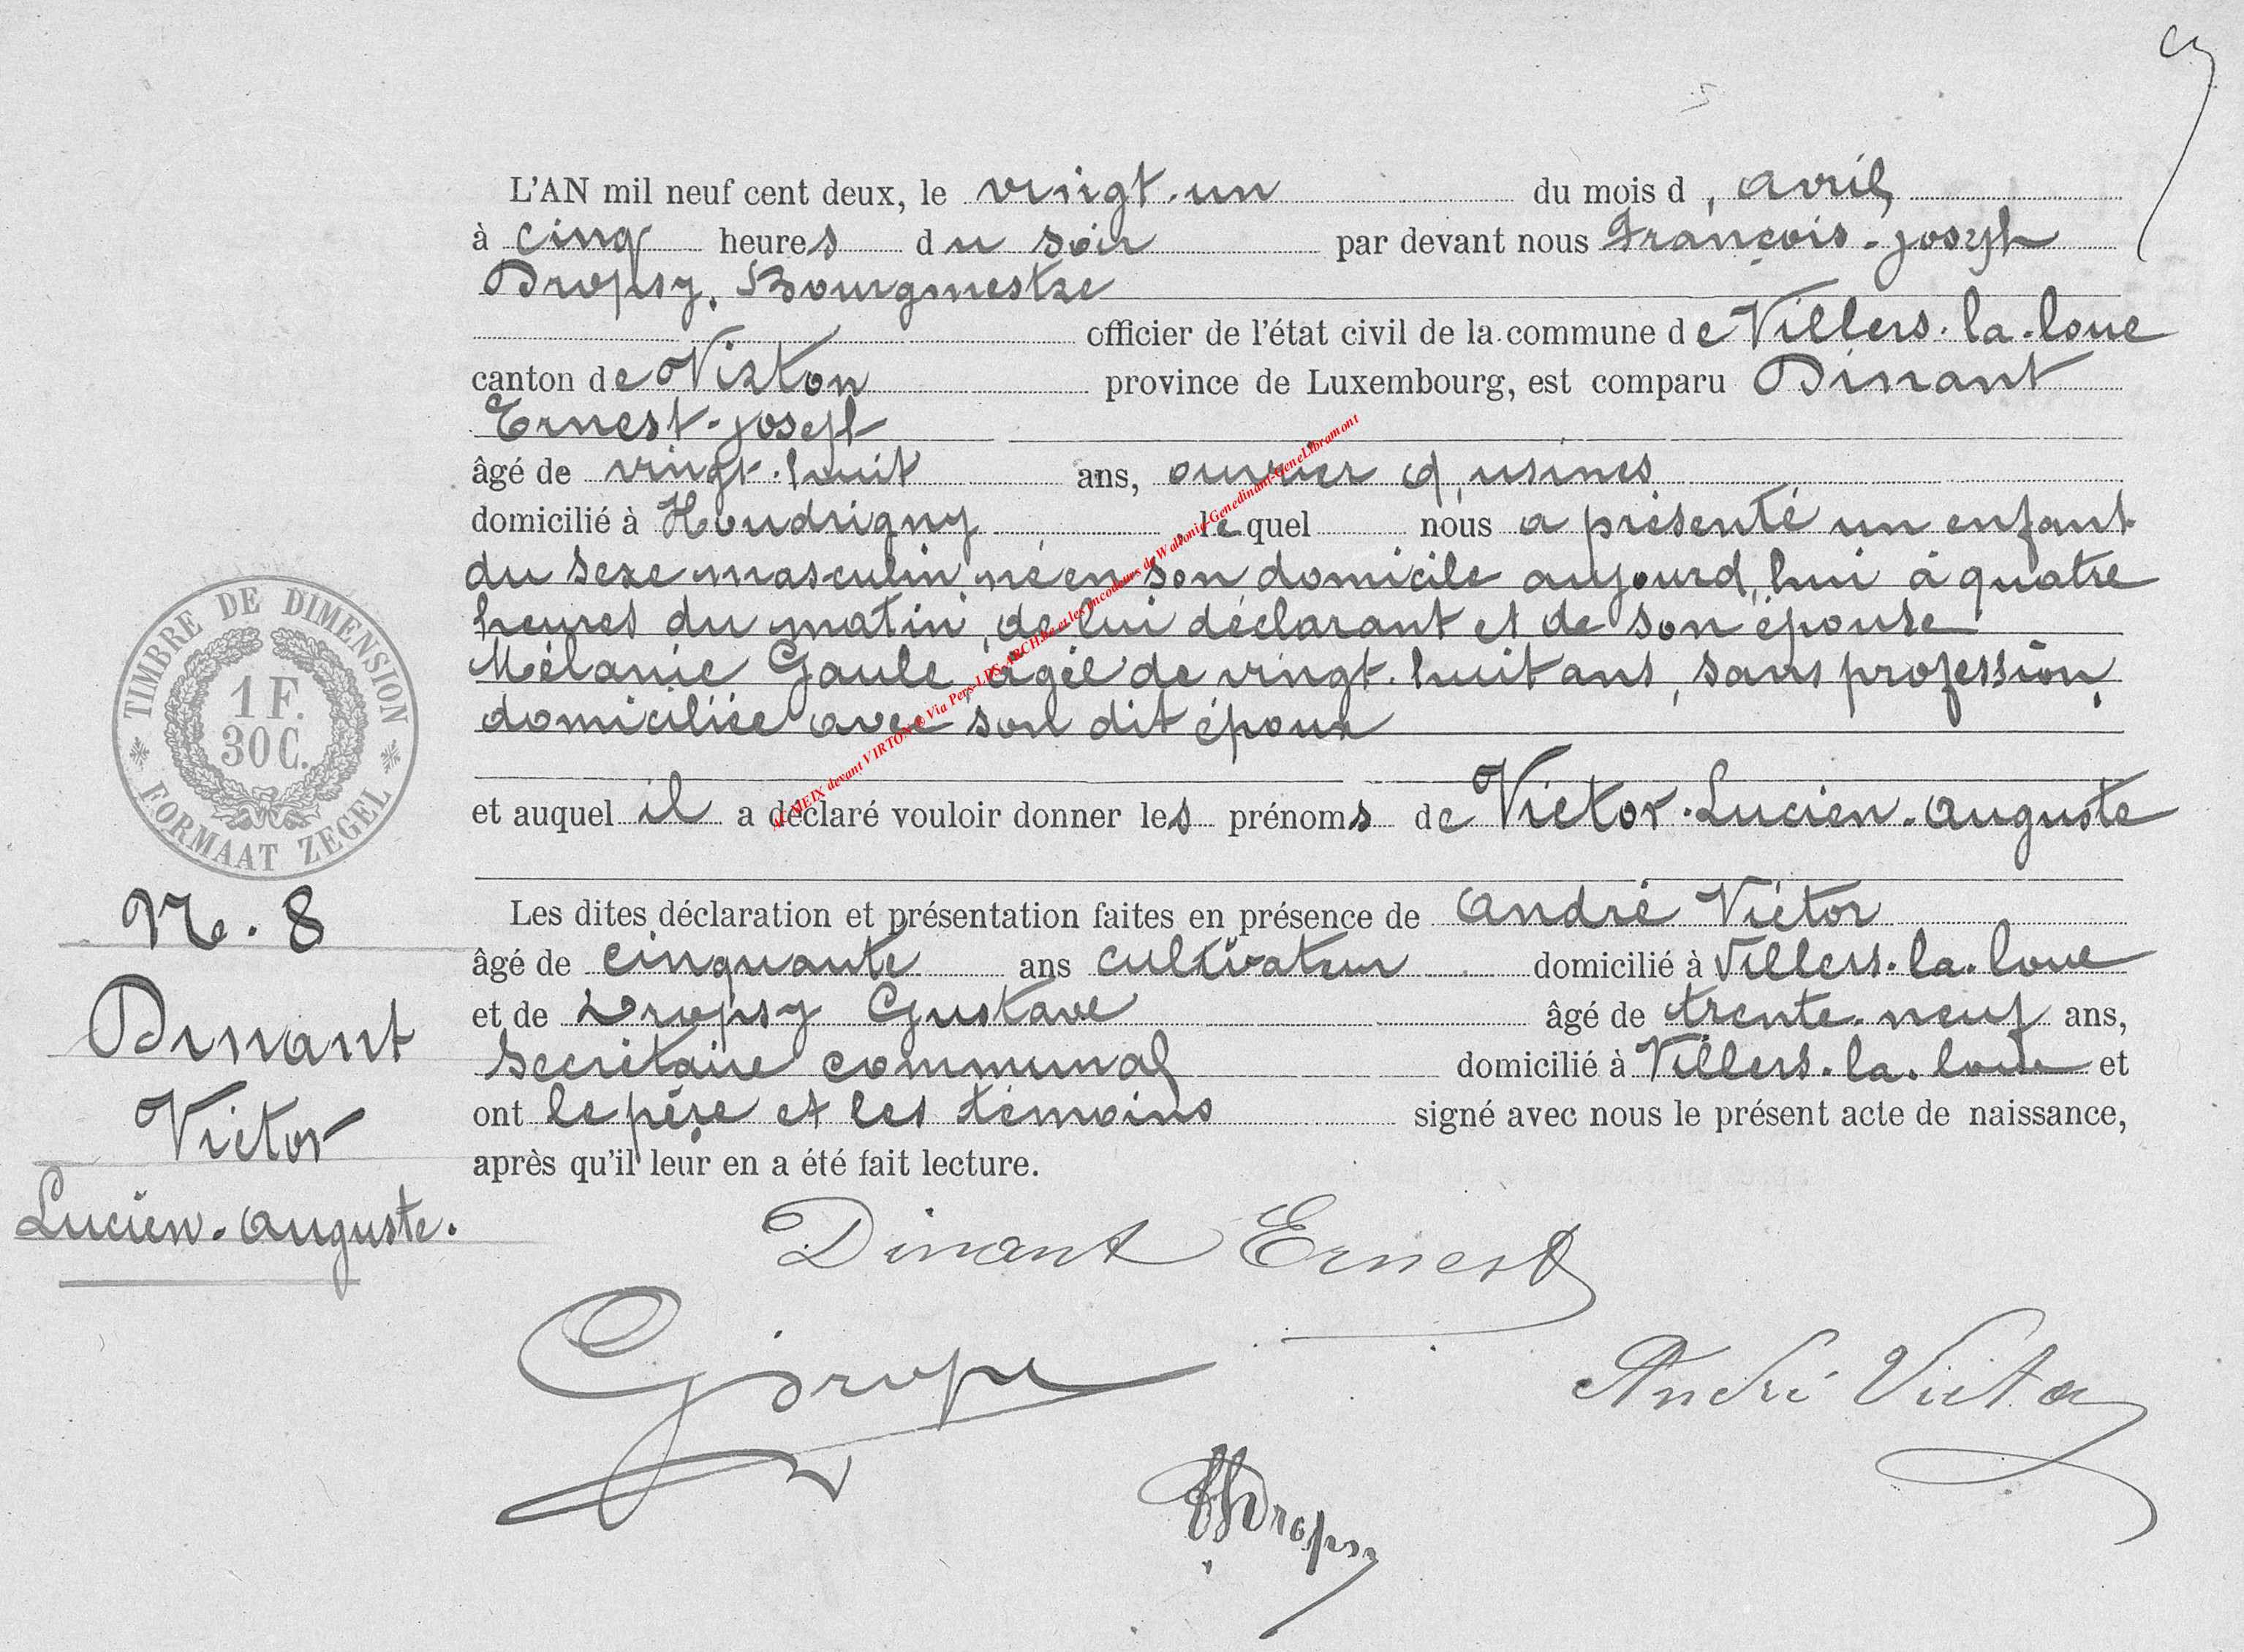 L'AN mil neuf cent deux, le vingt-un du mois d'avril
à cinq heures du soir par devant nous François-joseph
Dropsy, Bourgmestre
officier de l'état civil de la commune de Villers-la-loue
canton de Virton province de Luxembourg, est comparu Dinant
Ernest-joseph
âgé de vingt-huit ans, ouvrier d'usines
domicilié à Houdrigny, lequel nous a présenté un enfant
du sexe masculin, né en son domicile aujourd'hui à quatre
heures du matin, de lui déclarant et de son épouse
Mélanie Gaule, âgée de vingt-huit ans, sans profession,
domiciliée avec son dit époux
et auquel il a déclaré vouloir donner les prénoms de Victor-Lucien-auguste
Les dites déclaration et présentation faites en présence de andré Victor
âgé de cinquante ans cultivateur domicilié à Villers-la-loue
et de Dropsy Gustave âgé de trente-neuf ans,
secrétaire communal domicilié à Villers-la-loue et
ont le père et les témoins signé avec nous le présent acte de naissance,
après qu'il leur en a été fait lecture.
TIMBRE DE DIMENSION
1 F.
30 C.
FORMAAT ZEGEL
No. 8
Dinant
Victor
Lucien-auguste.
Dinant Ernest
André Victor
Dropsy
MEIX devant VIRTON © Via Pers-LDS-ARCH.be et les encodeurs de Wallonia-Genedinant-GeneLibramont